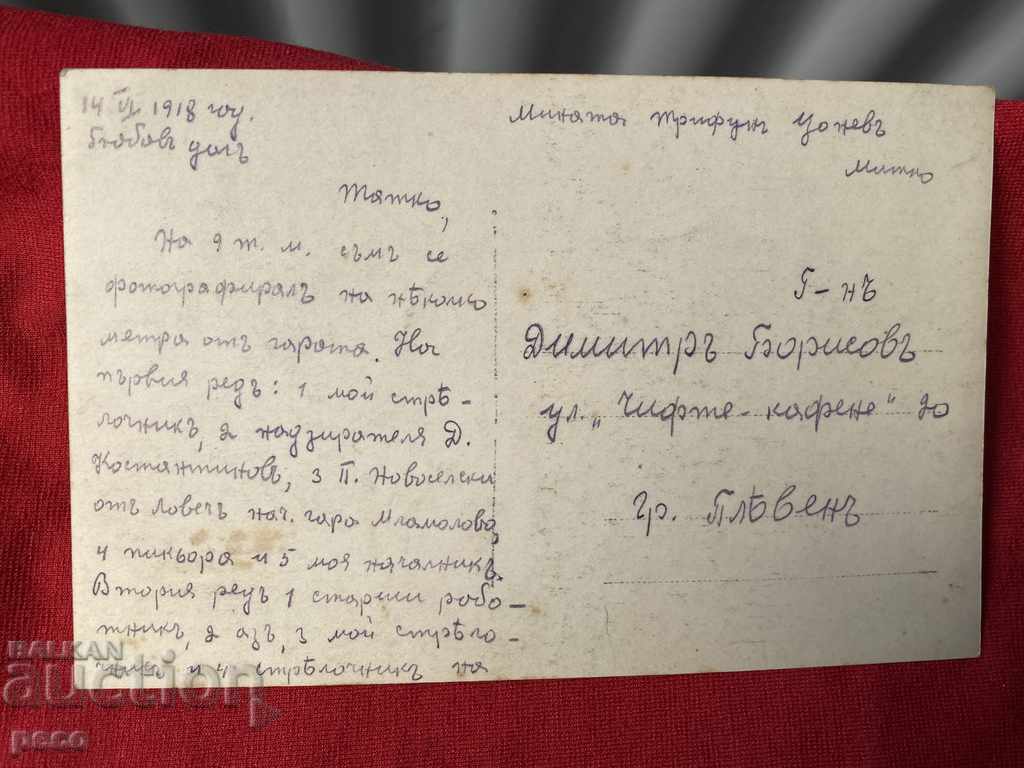 14 VI 1918 год.
Бобовъ долъ
Татко,
На 9 т. м. съмъ се
фотографиралъ на нѣколко
метра отъ гарата. На
първия редъ: 1 мой стрѣ-
лочникъ, 2 надзирателя Д.
Костантиновъ, 3 П. Новоселски
отъ Ловечъ нач. гара
4 пикьора и 5 моя началникъ.
Втория редъ 1 старши рабо-
тникъ, 2 азъ, 3 мой стрѣло-
и 4 стрѣлочникъ на
Мината Трифунъ Цоневъ
Митко
Г-нъ
Димитръ Борисовъ
ул. „Чифте-кафене" 20
гр. Плѣвенъ
BALKAN
auction
peco